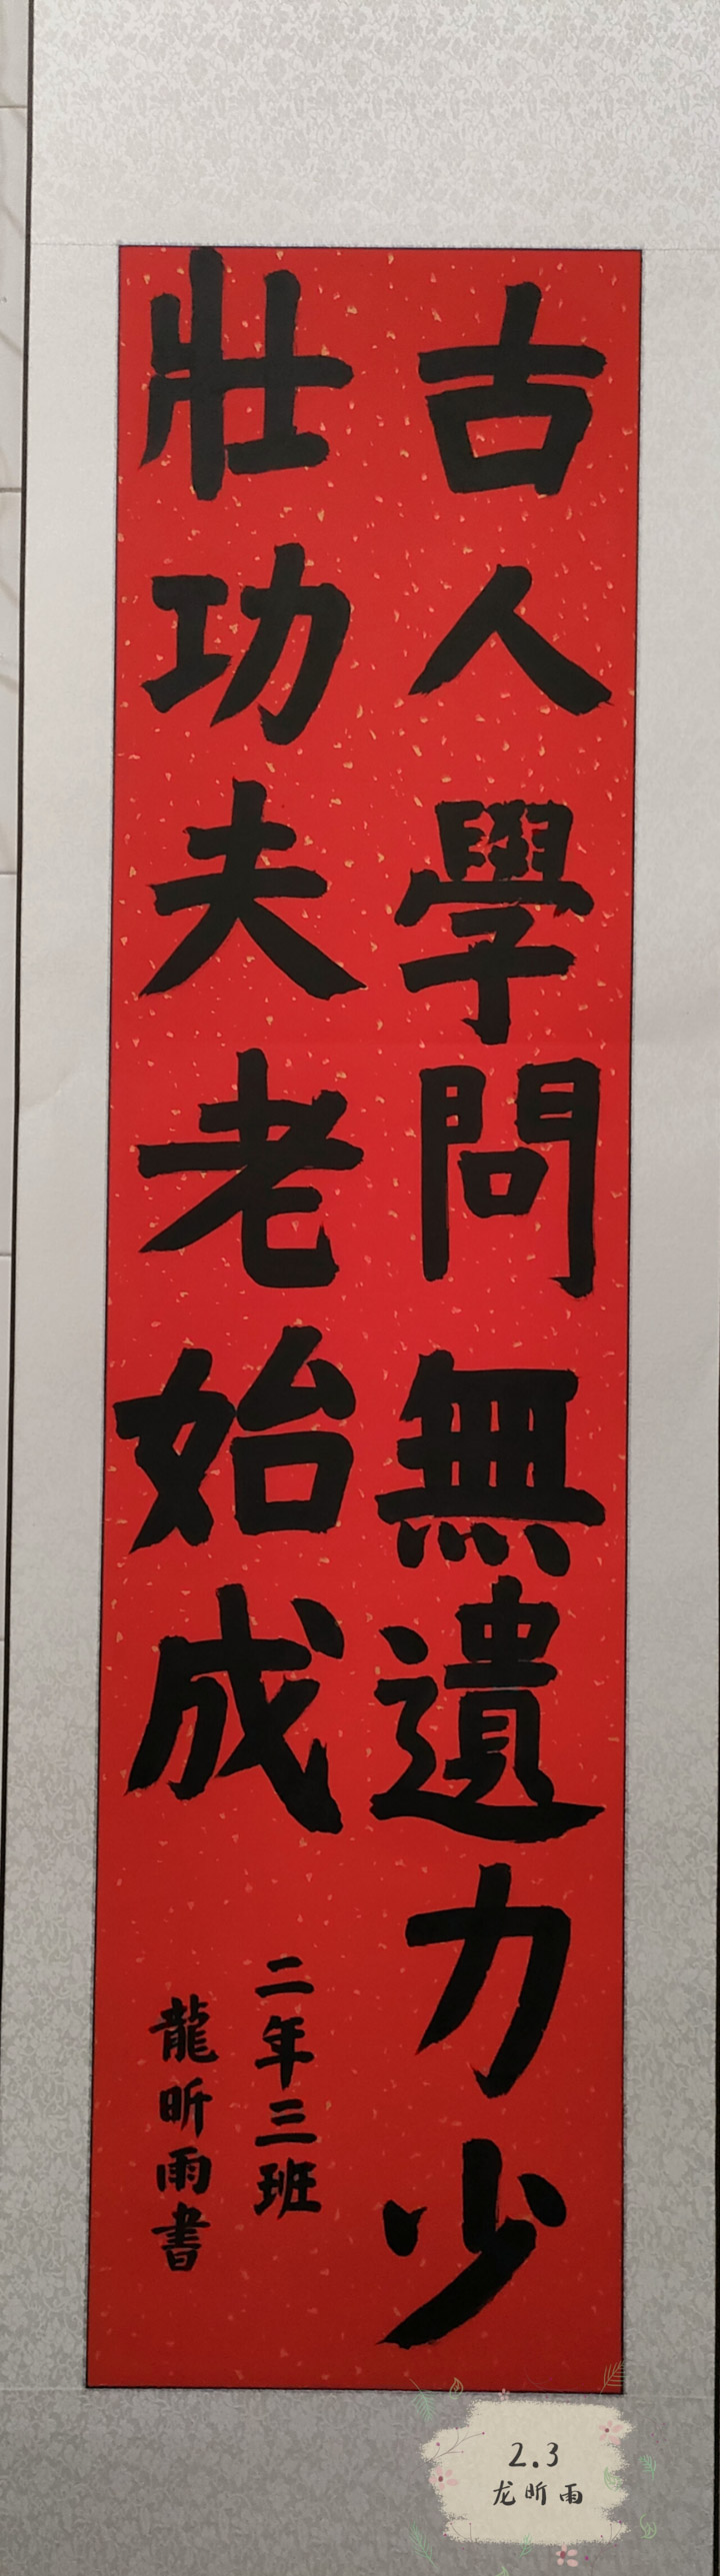 古人學問無遺力少
壯功夫老始成
二年三班
龍昕雨書
2.3
龙昕雨